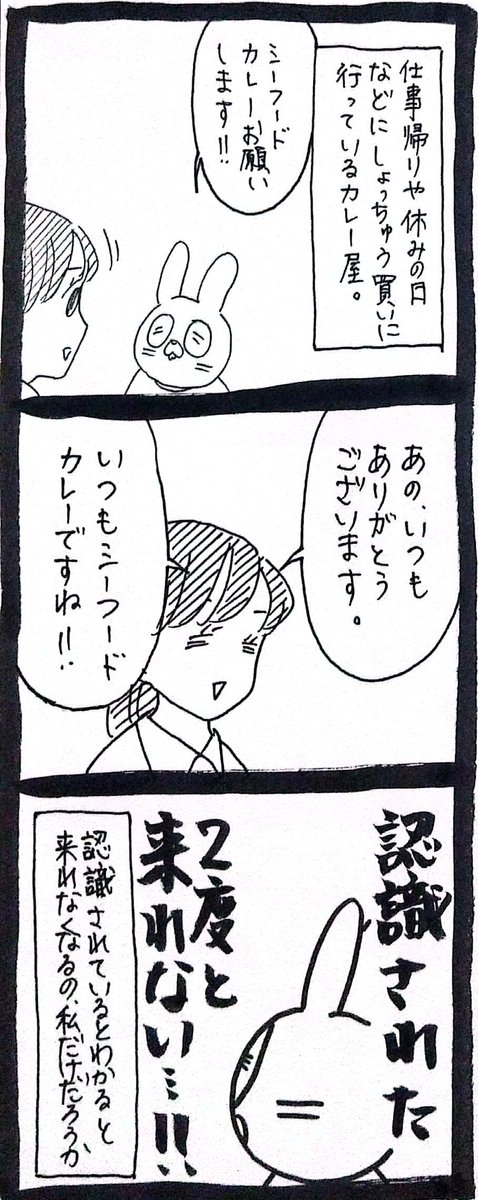 仕事帰りや休みの日
などにしょっちゅう買いに
行っているカレー屋。
シーフード
カレーお願い
します!!
あの、いつも
ありがとう
ございます。
いつもシーフード
カレーですね!!
認識された
2度と
来れない…!!
認識されているとわかると
来れなくなるの、私だけだろうか